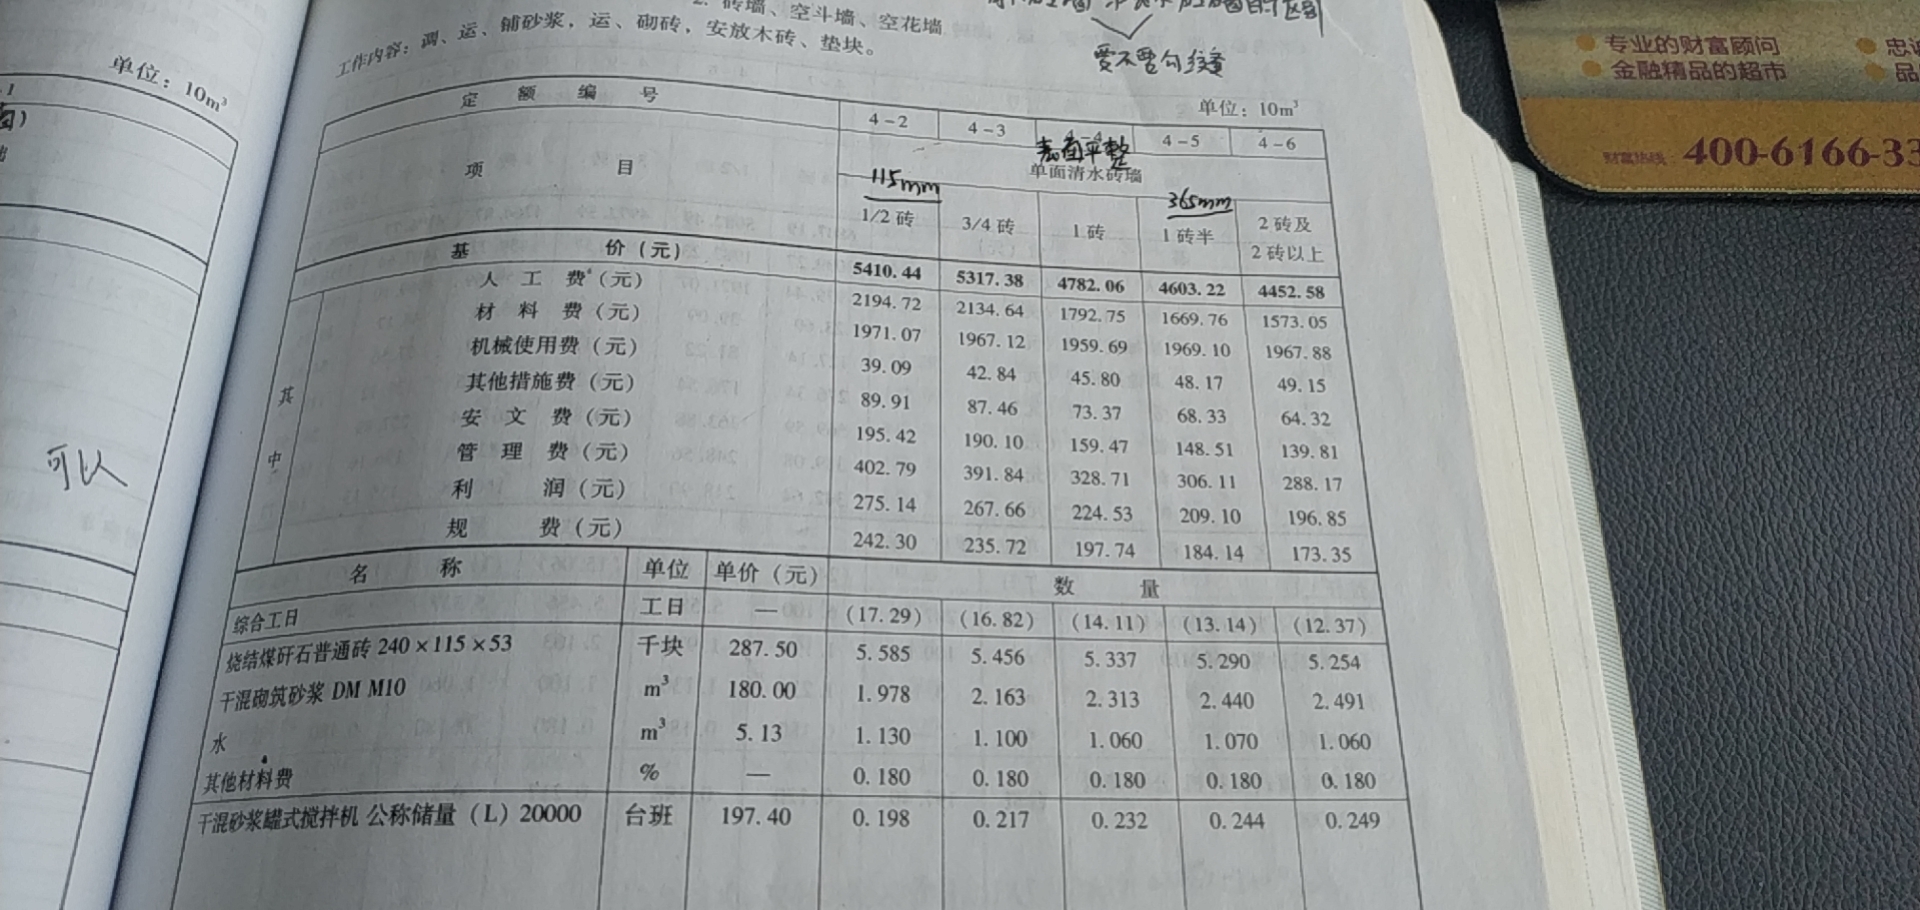 2. 砖墙、空斗墙、空花墙
工作内容：调、运、铺砂浆，运、砌砖，安放木砖、垫块。
要不要勾缝
单位：10m³
单位：10m³
定 额 编 号 4-2 4-3 4-4 4-5 4-6
项 目 单面清水砖墙
表面平整
115mm 365mm
1/2 砖 3/4 砖 1 砖 1 砖半 2 砖及2 砖以上
基 价（元） 5410.44 5317.38 4782.06 4603.22 4452.58
其中
人 工 费（元） 2194.72 2134.64 1792.75 1669.76 1573.05
材 料 费（元） 1971.07 1967.12 1959.69 1969.10 1967.88
机械使用费（元） 39.09 42.84 45.80 48.17 49.15
其他措施费（元） 89.91 87.46 73.37 68.33 64.32
安 文 费（元） 195.42 190.10 159.47 148.51 139.81
管 理 费（元） 402.79 391.84 328.71 306.11 288.17
利 润（元） 275.14 267.66 224.53 209.10 196.85
规 费（元） 242.30 235.72 197.74 184.14 173.35
名 称 单位 单价（元） 数 量
综合工日 工日 — (17.29) (16.82) (14.11) (13.14) (12.37)
烧结煤矸石普通砖 240×115×53 千块 287.50 5.585 5.456 5.337 5.290 5.254
干混砌筑砂浆 DM M10 m³ 180.00 1.978 2.163 2.313 2.440 2.491
水 m³ 5.13 1.130 1.100 1.060 1.070 1.060
其他材料费 % — 0.180 0.180 0.180 0.180 0.180
干混砂浆罐式搅拌机 公称储量（L）20000 台班 197.40 0.198 0.217 0.232 0.244 0.249
可以
专业的财富顾问
金融精品的超市
品
财富热线 400-6166-33